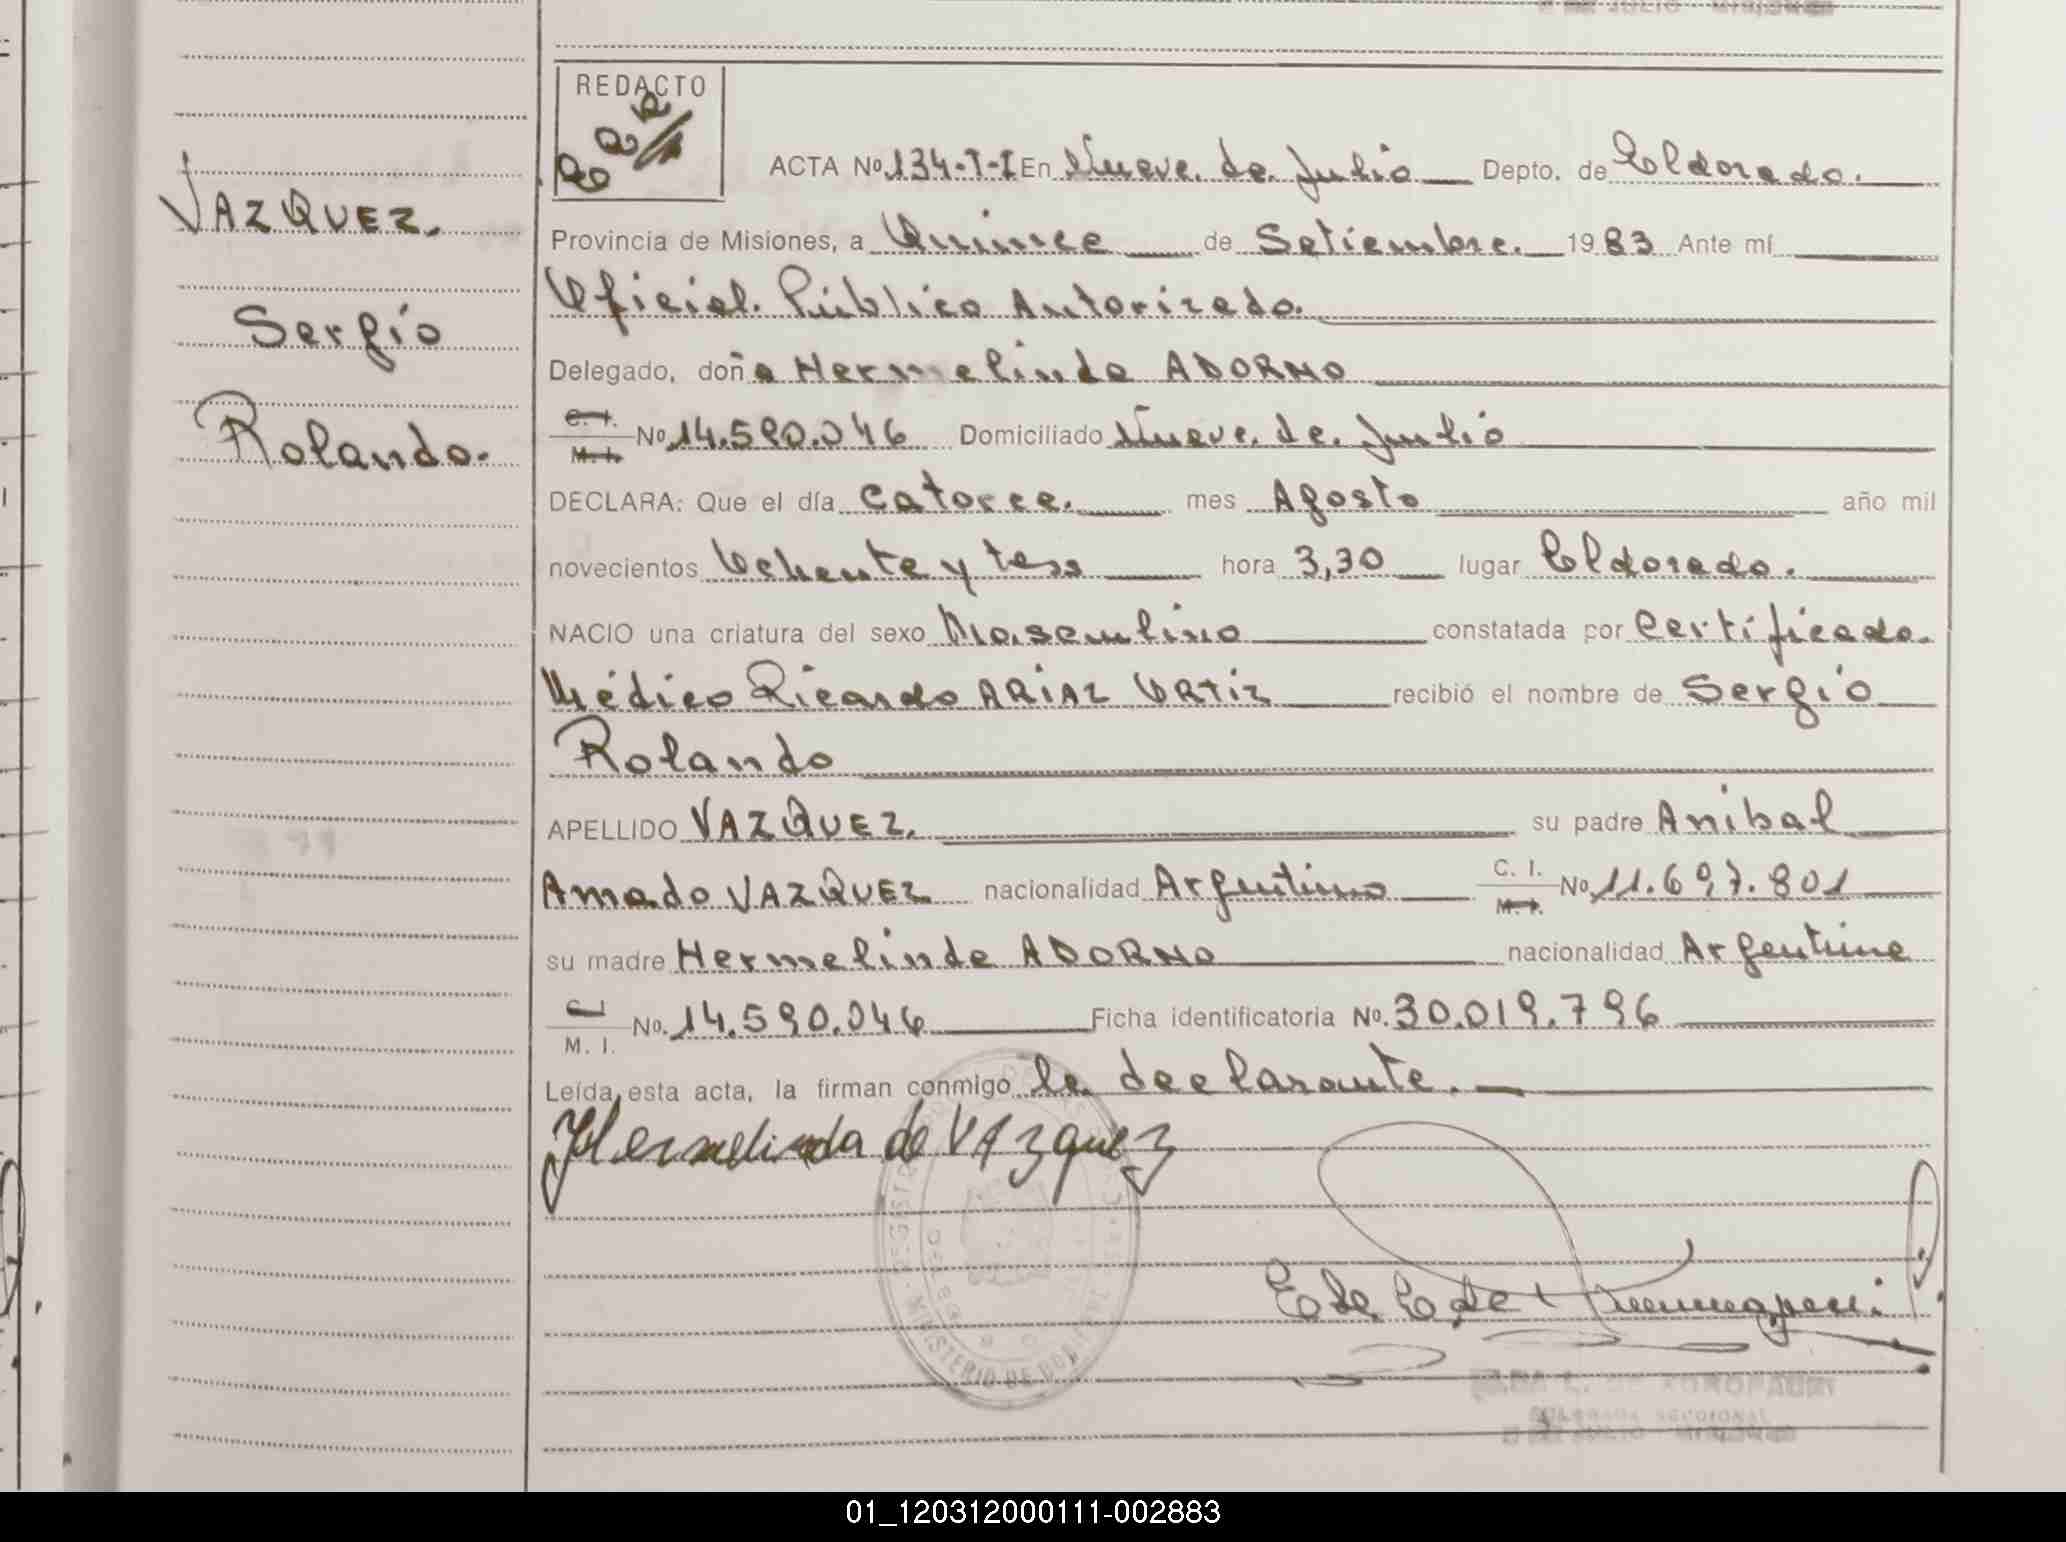 REDACTO
ACTA Nº 134-T-I En Nueve de Julio Depto. de Eldorado.
VAZQUEZ.
Provincia de Misiones, a Quince de Setiembre. 1983 Ante mí
Oficial Público Autorizado.
Sergio
Delegado, doña Hermelinda ADORNO
Rolando.
C. I. M. I. Nº 14.590.046 Domiciliado Nueve de Julio
DECLARA: Que el día catorce. mes Agosto año mil
novecientos Ochenta y tres hora 3,30 lugar Eldorado.
NACIO una criatura del sexo Masculino constatada por Certificado
Médico Ricardo ARIAZ ORTIZ recibió el nombre de Sergio
Rolando
APELLIDO VAZQUEZ. su padre Anibal
Amado VAZQUEZ nacionalidad Argentino C. I. M. I. Nº 11.697.801
su madre Hermelinda ADORNO nacionalidad Argentina
C. I. M. I. Nº. 14.590.046 Ficha identificatoria Nº. 30.019.796
Leída esta acta, la firman conmigo la declarante.
Hermelinda de VAzquez
MINISTERIO DE
01_120312000111-002883